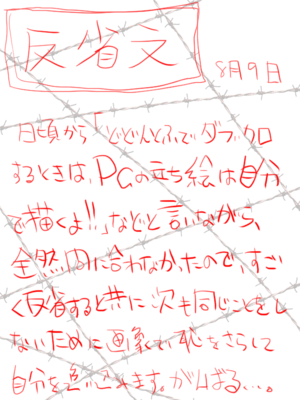 反省文
8月9日
日頃から「どどんとふでダブクロ
するときは、PCの立ち絵は自分
で描くよ!!」などと言いながら、
全然間に合わなかったので、すご
く反省すると共に次も同じことをし
ないために画像で恥をさらして
自分を追い込みます。がんばる…。